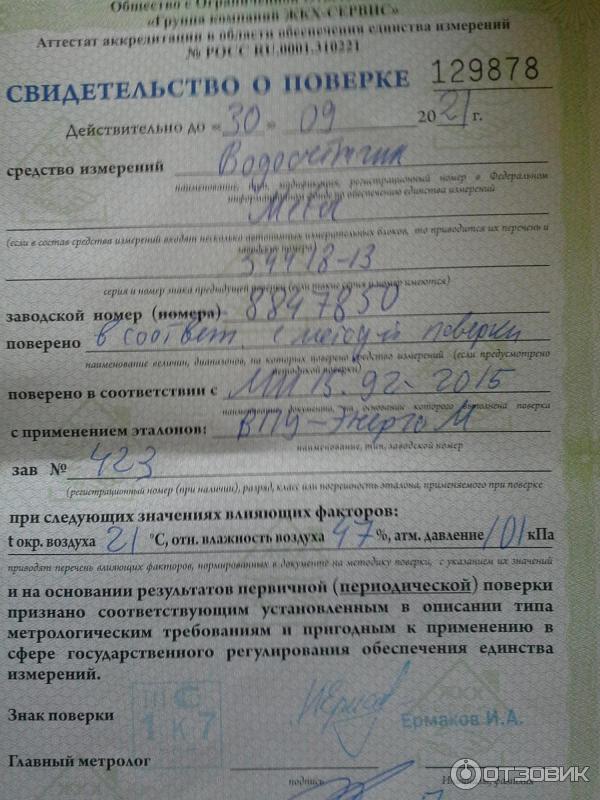 Общество с Ограниченной
«Группа компаний ЖКХ-СЕРВИС»
Аттестат аккредитации в области обеспечения единства измерений
№ РОСС RU.0001.310221
СВИДЕТЕЛЬСТВО О ПОВЕРКЕ 129878
Действительно до «30» 09 2021 г.
средство измерений Водосчетчик
наименование, тип, модификация, регистрационный номер в Федеральном
информационном фонде по обеспечению единства измерений
(если в состав средства измерений входят несколько автономных измерительных блоков, то приводится их перечень и
заводские номера)
серия и номер знака предыдущей поверки (если такие серия и номер имеются)
заводской номер (номера) 8847830
поверено в соответ. с методикой поверки
наименование величин, диапазонов, на которых поверено средство измерений (если предусмотрено
методикой поверки)
поверено в соответствии с
наименование документа, на основании которого выполнена поверка
с применением эталонов: ВПУ-Энерго М
наименование, тип, заводской номер
зав № 423
(регистрационный номер (при наличии), разряд, класс или погрешность эталона, применяемого при поверке
при следующих значениях влияющих факторов:
t окр. воздуха 21 °С, отн. влажность воздуха 47 %, атм. давление 101 кПа
приводят перечень влияющих факторов, нормированных в документе на методику поверки, с указанием их значений
и на основании результатов первичной (периодической) поверки
признано соответствующим установленным в описании типа
метрологическим требованиям и пригодным к применению в
сфере государственного регулирования обеспечения единства
измерений.
Знак поверки
Ермаков И.А.
Главный метролог
подпись фамилия
ОТЗОВИК